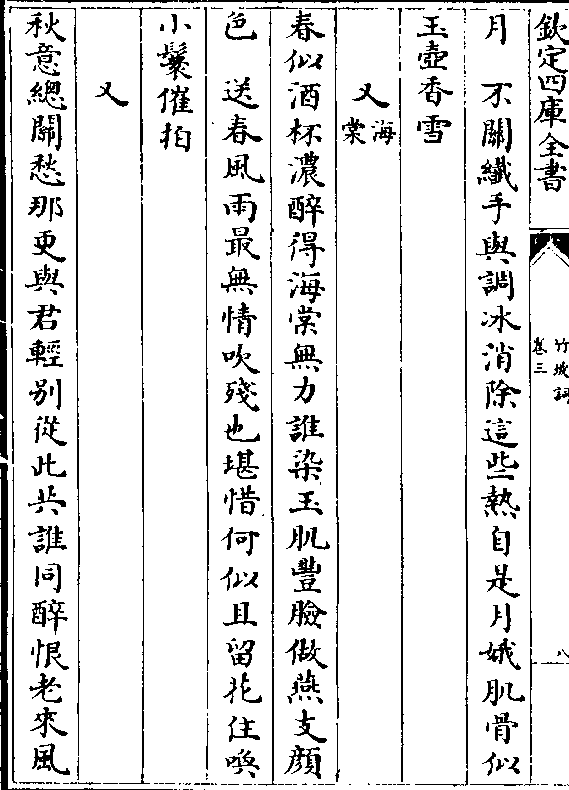 欽定四庫全書
竹坡詞
卷三
八
月　不關纖手與調冰消除這些熱自是月娥肌骨似
玉壺香雪
又海棠
春似酒杯濃醉得海棠無力誰染玉肌豐臉做燕支顏
色　送春風雨最無情吹殘也堪惜何似且留花住喚
小鬟催拍
又
秋意總關愁那更與君輕别從此共誰同醉恨老來風